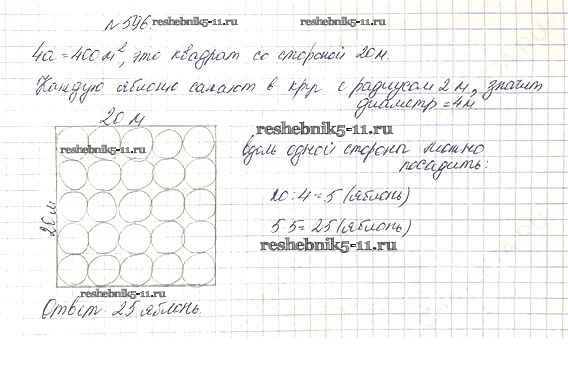 № 596.
reshebnik5-11.ru
reshebnik5-11.ru
4а = 400 м², это квадрат со стороной 20 м.
Каждую яблоню сажают в круг с радиусом 2 м, значит
диаметр = 4 м
20 м
reshebnik5-11.ru
вдоль одной стороны можно
посадить:
reshebnik5-11.ru
20 : 4 = 5 (яблонь)
5 5 = 25 (яблонь)
20 м
reshebnik5-11.ru
reshebnik5-11.ru
Ответ: 25 яблонь.